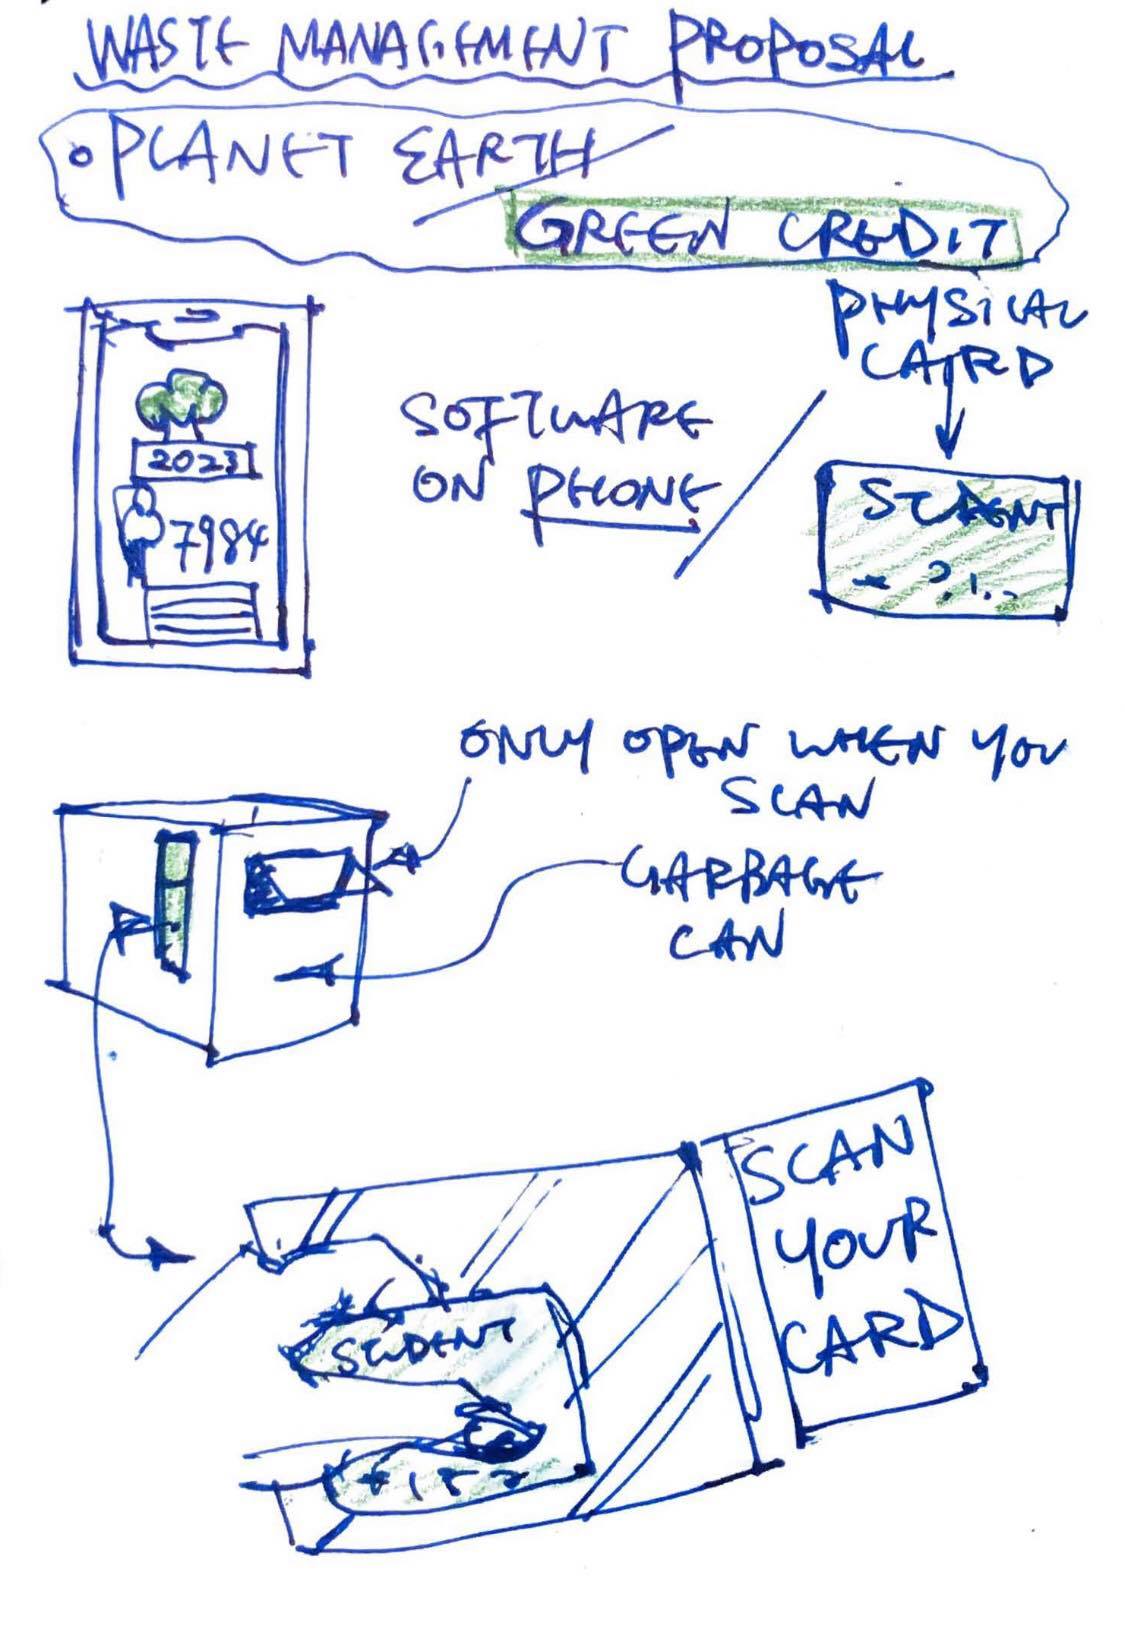 WASTE MANAGEMENT PROPOSAL
• PLANET EARTH
GREEN CREDIT
PHYSICAL
CARD
SOFTWARE
ON PHONE
2023
7984
STUDENT
ONLY OPEN WHEN YOU
SCAN
GARBAGE
CAN
SCAN
YOUR
CARD
STUDENT